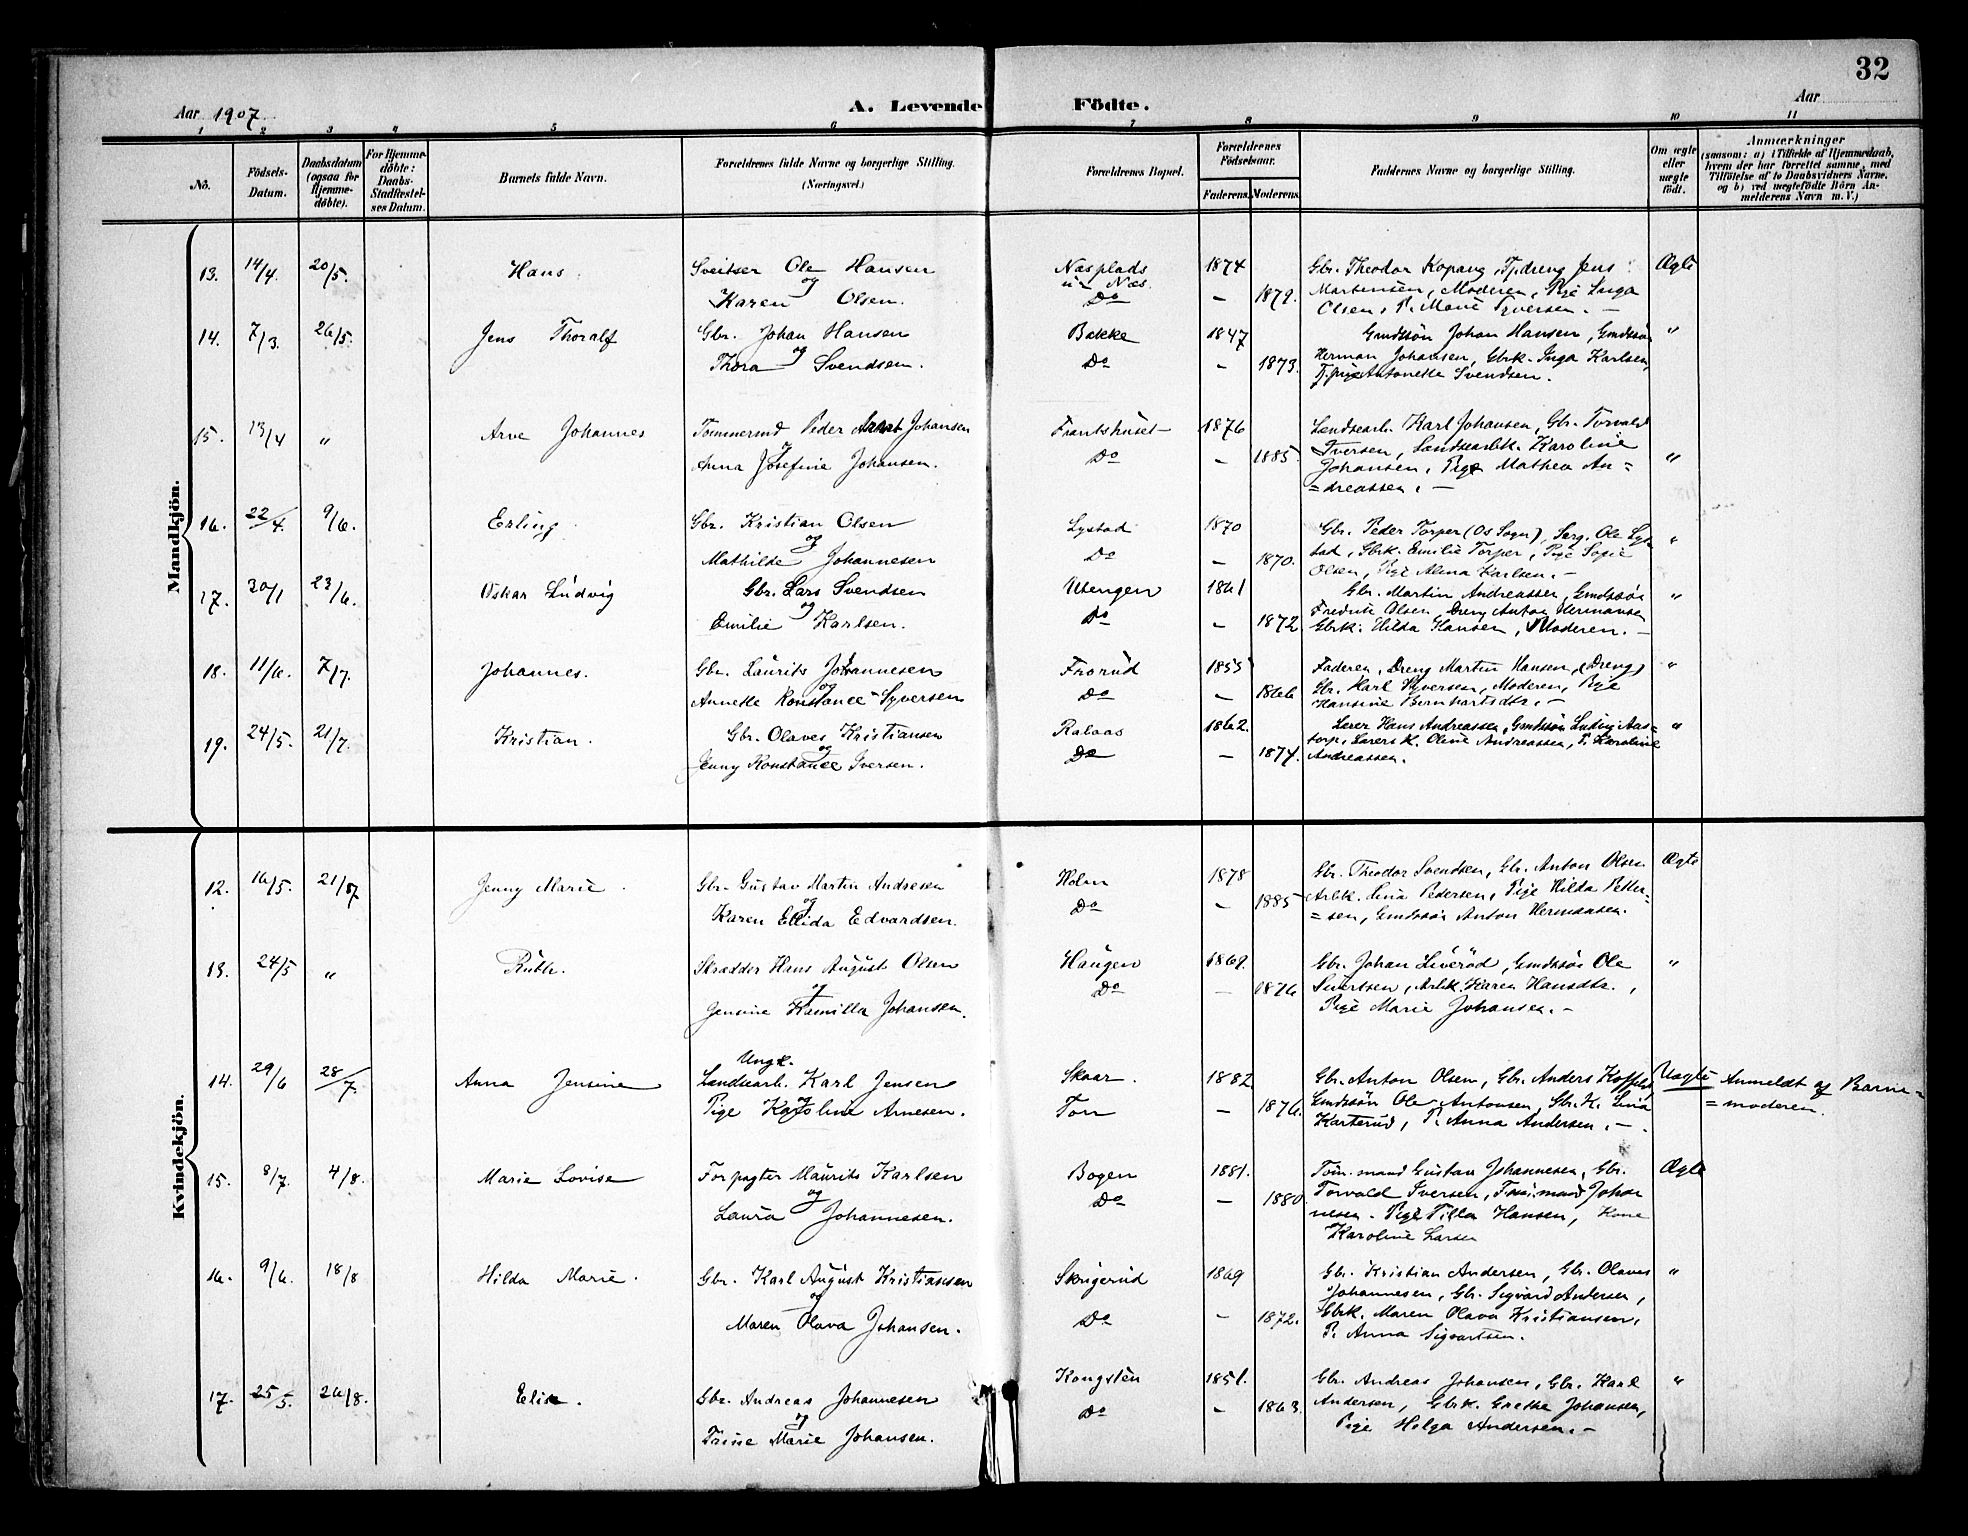 32
Aar 1907
A. Levende Födte.
Aar
1 2 3 4 5 6 7 8 9 10 11
No.
Födsels-Datum.
Daabsdatum (ogsaa for Hjemme-döbte).
For Hjemme-döbte: Daabs-Stadfæstel-ses Datum.
Barnets fulde Navn.
Forældrenes fulde Navne og borgerlige Stilling. (Næringsvei.)
Forældrenes Bopæl.
Forældrenes Födselsaar.
Faderens. Moderens.
Faddernes Navne og borgerlige Stilling.
Om ægte eller uægte födt.
Anmærkninger
(saasom: a) i Tilfælde af Hjemmedaab, hvem der har forrettet samme, med Tilföielse af to Daabsvidners Navne, og b) ved uægtefödte Börn An-melderens Navn m. V.)
Mandkjön.
13. 14/4. 20/5. Hans. Sveitser Ole Hansen Næsplads 1874 Gbr. Theodor Kopang, Tj.dreng Jens Ægte
og u. Næs.
Karen Olsen. Do — 1879. Martinsen, Moderen, Pige Inga
Olsen, P. Marie Iversen. —
14. 7/3. 26/5. Jens Thoralf Gbr. Johan Hansen Bakke 1847 Gmdssön Johan Hansen, Gmdssön "
og
Thora Svendsen. Do — 1873. Herman Johansen, Gbrk. Inga Karlsen,
Tj.pige Antonette Svendsen.
15. 13/4 " Arve Johannes Tømmermd Peder Johansen Frantshuset 1876 Landsearb. Karl Johansen, Gbr. Torvald
og Iversen, Landsearbk. Karoline
Anna Josefine Johansen. Do — 1885. Johansen, Pige Mathea An= "
=dreassen. —
16. 22/4. 9/6. Erling. Gbr. Kristian Olsen Lystad 1870 Gbr. Peder Torper (Os Sogn), Serg. Ole Lys- "
og tad, Gbrk. Emilie Torper, Pige Sofie
Mathilde Johannesen Do — 1870. Olsen, Pige Alma Karlsen. —
17. 30/1 23/6. Oskar Ludvig Gbr. Lars Svendsen Utengen 1861 Gbr. Martin Andreassen, Gmdssön "
og Fredrik Olsen, Dreng Anton Hermansen
Emilie Karlsen. Do — 1872 Gbrk. Hilda Hansen, Moderen. —
18. 11/6. 7/7. Johannes. Gbr. Laurits Johannesen Frorud 1855 Faderen, Dreng Martin Hansen, (Dreng) "
og Gbr. Karl Syversen, Moderen, Pige
Annette Konstance Syversen Do — 1866 Hansine Bernhartsdtr. —
19. 24/5. 21/7. Kristian. Gbr. Olaves Kristiansen Ralaas 1862. Lærer Hans Andreassen, Gmdssön Ludvig Aas- "
og torp, Lærers K. Oline Andreassen, P. Karoline
Jenny Konstance Iversen. Do — 1874. Andreassen.
Kvindekjön.
12. 16/5. 21/07 Jenny Marie. Gbr. Gustav Martin Andresen Holm 1878 Gbr. Theodor Svendsen, Gbr. Anton Olsen Ægte
og
Karen Ellida Edvardsen. Do — 1885 Arbk. Lina Pedersen, Pige Hilda Petter=
=sen, Gmdssön Anton Hermansen.
13. 24/5 " Ruth. Skrædder Hans August Olsen Haugen 1869. Gbr. Johan Liveröd, Gmdssön Ole "
og
Jensine Kamilla Johansen. Do — 1876 Sivertsen, Arbk. Karen Hansdtr.,
Pige Marie Johansen. —
14. 29/6 28/7. Anna Jensine Ungk. Landsearb. Karl Jensen Skaar. 1882 Gbr. Anton Olsen, Gbr. Anders Uægte Anmeldt af Barne=
og Gmdssön Ole Antonsen, Gbr. K. Lina =moderen.
Pige Karoline Arnesen. Ton — 1876. Karterud, P. Anna Andersen. —
15. 8/7. 4/8. Marie Lovise Forpagter Maurits Karlsen Bogen 1881. Töm.mand Gustav Johannesen, Gbr. Ægte
og Torvald Iversen, Töm.mand Johan-
Laura Johannesen. Do — 1880 nesen. Pige Tilla Hansen, Kone
Karoline Larsen
16. 9/6. 18/8 Hilda Marie. Gbr. Karl August Kristiansen Skrigerud 1869 Gbr. Kristian Andersen, Gbr. Olaves "
og Johannesen, Gbr. Sigvard Andersen,
Maren Olava Johansen. Do — 1872. Gbrk. Maren Olava Kristiansen,
P. Anna Sigvartsen.
17. 25/5. 26/8. Elise. Gbr. Andreas Johannesen Kongsten 1851. Gbr. Andreas Johansen, Gbr. Karl "
og
Trine Marie Johansen. Do — 1863. Andersen, Gbrk. Grethe Johansen,
Pige Helga Andersen. —